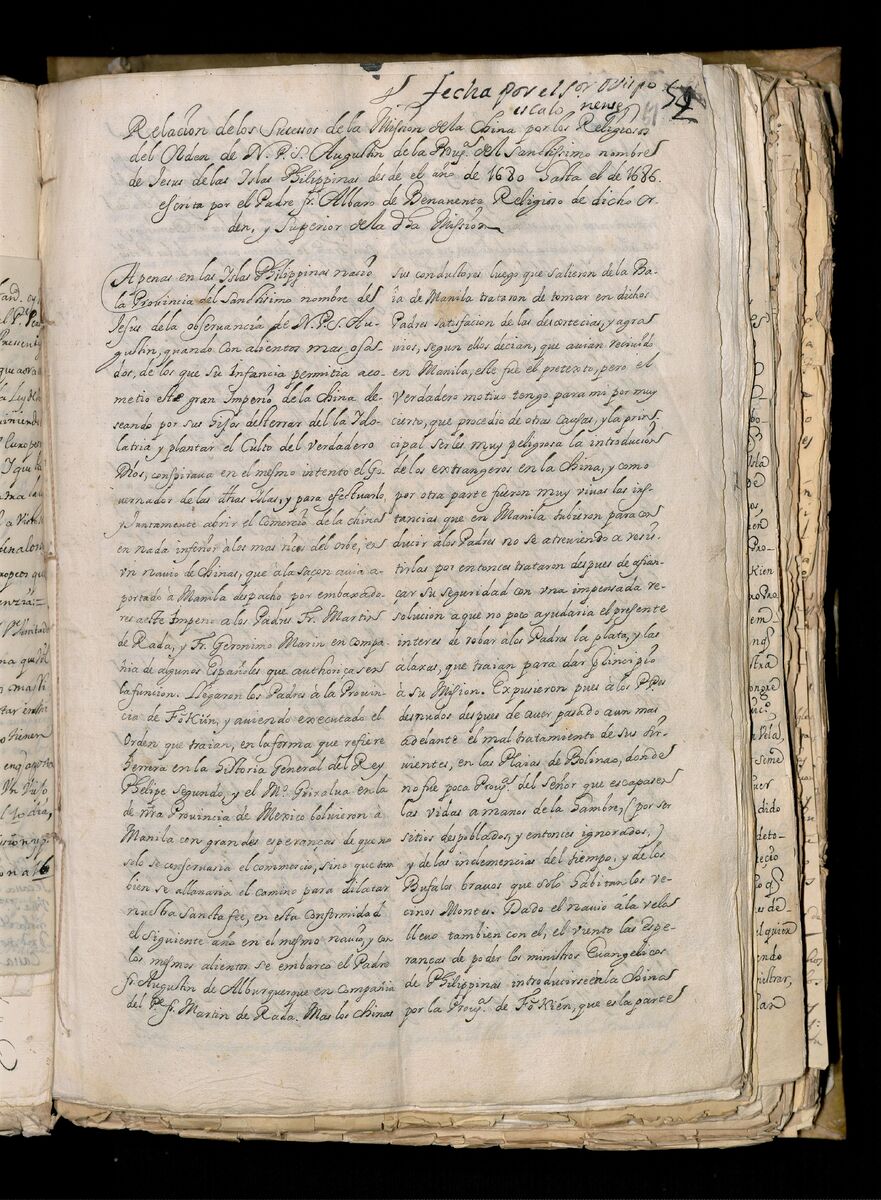 fecha por el sor obispo
escalonense
52
Relacion de los Sucessos de la Mission de la China por los Religiosos
del Orden de N. P. S. Augustin de la Prouª. del Sanctissimo nombre
de Jesus de las Islas Philippinas desde el año de 1680 hasta el de 1686.
escrita por el Padre fr. Albaro de Benavente Religioso de dicho or-
den, y Superior de la dha Mission
Apenas en las Islas Philippinas nacio
la Provincia del Sanctissimo nombre de
Jesus de la observancia de N. P. S. Au-
gustin, quando con alientos mas osa-
dos, de los que su Infancia permitia aco-
metio este gran Imperio de la China de-
seando por sus Hijos desterrar del la Ido-
latria y plantar el Culto del verdadero
Dios, conspirava en el mesmo intento el Go-
uernador de las dhas Islas, y para efectuarlo,
y Juntamente abrir el comercio de la China
en nada inferior à los mas ricos del orbe, en
vn nauio de Chinas, que à la saçon auia a-
portado à Manila despacho por embaxado-
res a este Imperio a los Padres Fr. Martin
de Rada, y Fr. Geronimo Marin en compa-
ñia de algunos Españoles que authoricasen
la funcion. Llegaron los Padres à la Provin-
cia de Fô Kién, y auiendo executado el
Orden que traian, en la forma que refiere
herrera en la Historia General del Rey
Phelipe segundo, y el Mº. Grixalua en la
de nra Provincia de Mexico bolvieron à
Manila con grandes esperanças de que no
solo se conservaria el commercio, sino que tam
bien se allanaria el camino para dilatar
nuestra Sancta fee, en esta conformidad
el siguiente año en el mesmo nauio, y con
los mesmos alientos se embarco el Padre
fr. Augustin de Alburquerque en Compañia
del Pe. fr. Martin de Rada. Mas los Chinas
sus conductores luego que salieron de la Ba-
ia de Manila trataron de tomar en dichos
Padres satisfacion de las descortecias, y agra
uios, segun ellos decian, que auian reciuido
en Manila, este fue el pretexto, pero el
verdadero motiuo tengo para mi por muy
cierto, que procedio de otras causas, y la prin-
cipal serles muy peligrosa la introducion
de los extrangeros en la China, y como
por otra parte fueron muy viuas las ins-
tancias que en Manila tubieron para con
ducir a los Padres no se atreuiendo a resis-
tirlas por entonces trataron despues de afian-
çar su seguridad con vna impensada re-
solucion a que no poco ayudaria el presente
interes de robar a los Padres la plata, y las
alaxas, que traian para dar principio
à su Mission. Expusieron pues à los PPes
desnudos despues de auer pasado aun mas
adelante el mal tratamiento de sus sir-
uientes, en las Plaias de Bolinao, donde
no fue poca Prouª. del Señor que escapasen
las vidas a manos de la hambre, (por ser
sitios despoblados, y entonces ignorados,)
y de las inclemencias del tiempo, y de los
Bufalos brauos que solo habitan los ve-
cinos Montes. Dado el nauio a la vela
lleuo tambien con el, el viento las espe-
ranças de poder los ministros Euangelicos
de Philippinas introducirse en la China
por la Prouª. de Fô Kién, que es la parte